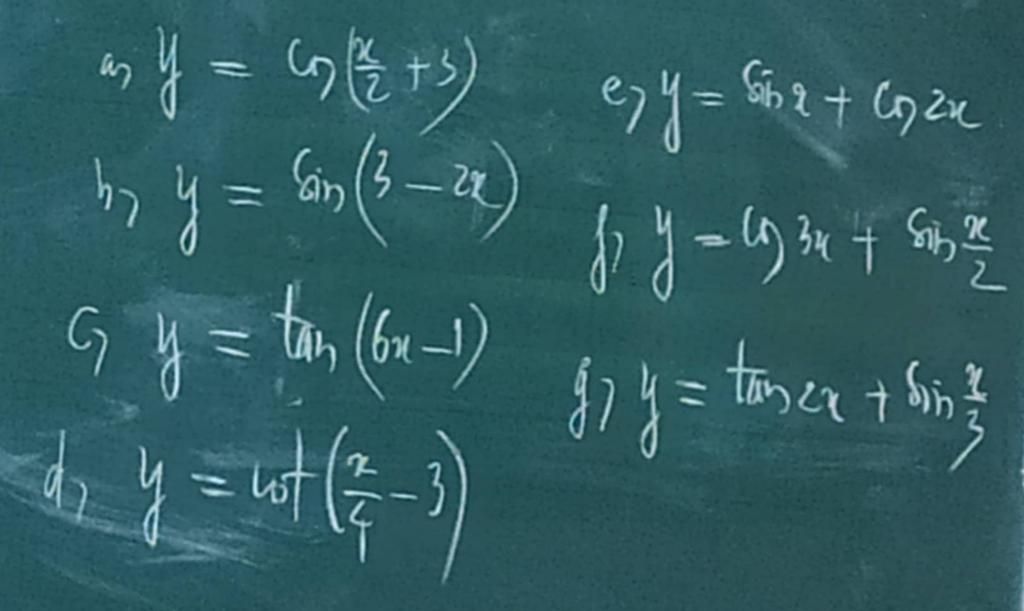 a, y = cos(x/2 + 3)
b, y = sin(3 - 2x)
c, y = tan(6x - 1)
d, y = cot(x/4 - 3)
e, y = sin x + cos 2x
f, y = cos 3x + sin x/2
g, y = tan 2x + sin x/3